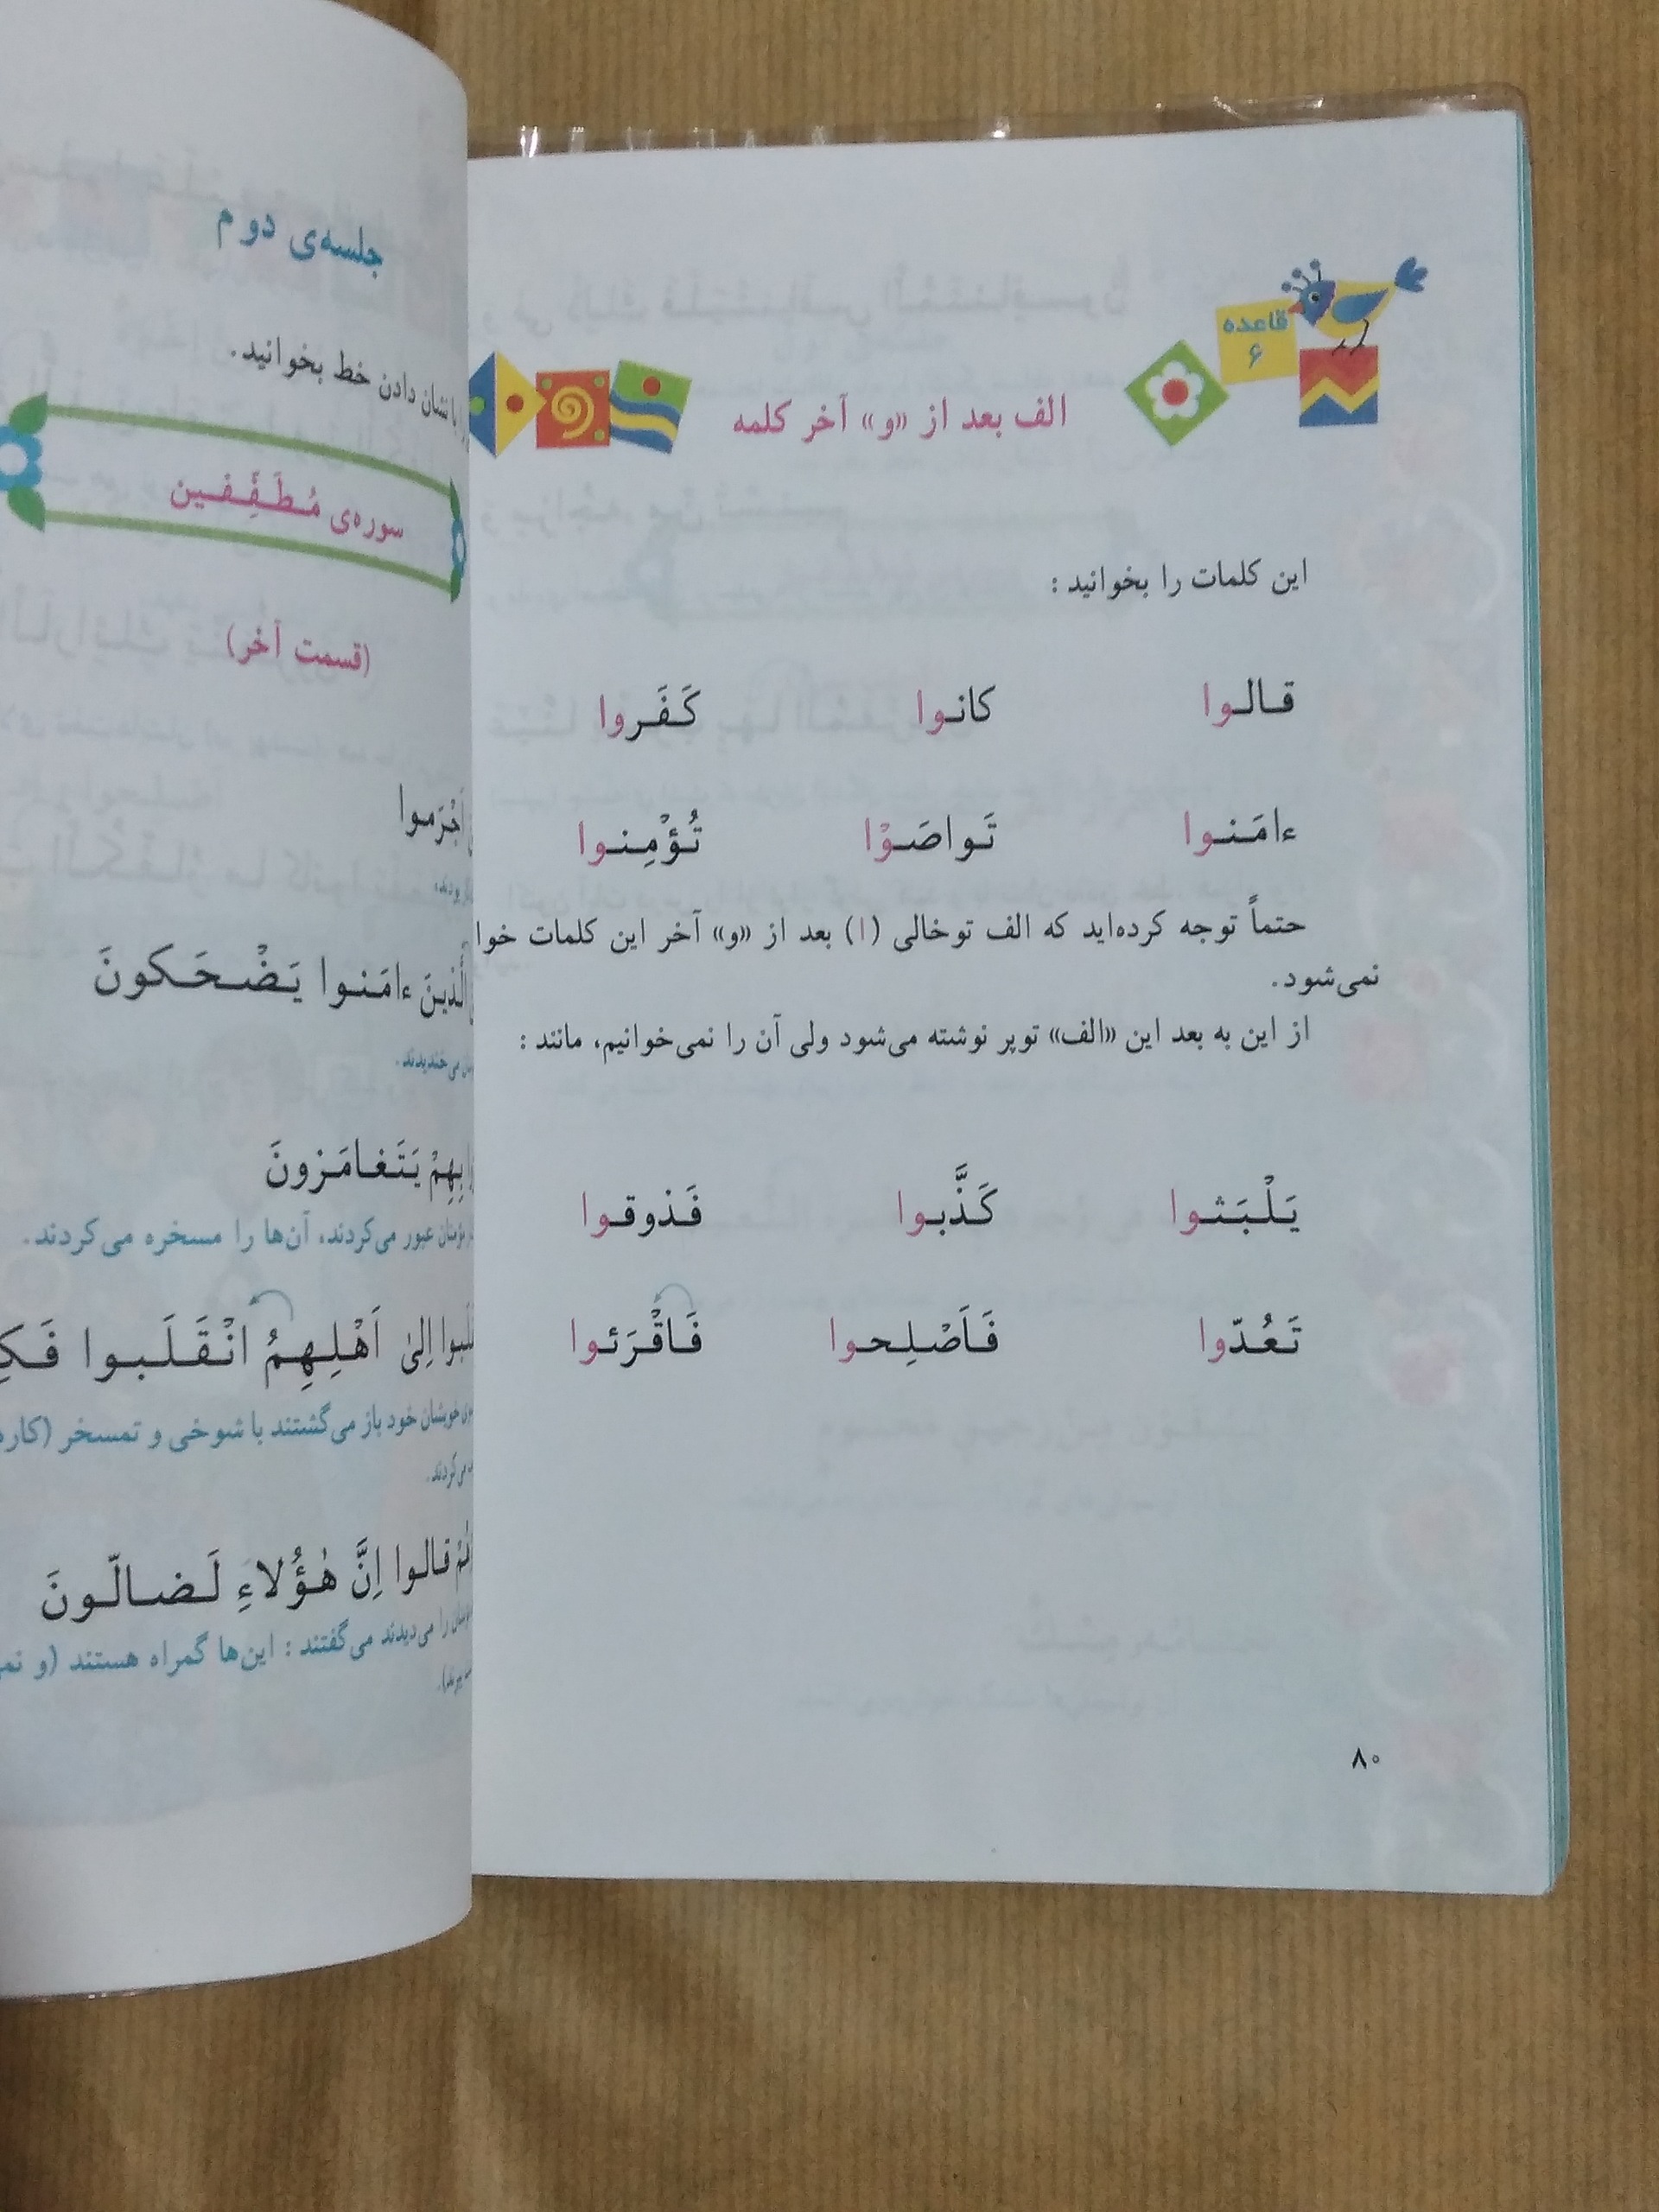 قاعده
۶
الف بعد از «و» آخر کلمه
این کلمات را بخوانید :
قـالـوا کانـوا کَـفَـروا
ءامَـنـوا تَـواصَـوْا تُـؤْمِـنـوا
حتماً توجه کرده‌اید که الف توخالی (ا) بعد از «و» آخر این کلمات
نمی‌شود.
از این به بعد این «الف» توپر نوشته می‌شود ولی آن را نمی‌خوانیم، مانند :
یَـلْـبَـثـوا کَـذَّبـوا فَـذوقـوا
تَـعُـدّوا فَـاَصْـلِـحـوا فَـاقْـرَئـوا
۸۰
جلسه‌ی دوم
نشان دادن خط بخوانید.
سوره‌ی مُـطَـفِّـفـیـن
(قسمت آخر)
اَجْرَمـوا
ءامَـنـوا یَـضْـحَـکـونَ
می‌خندیدند.
بِهِمْ یَـتَـغـامَـزونَ
عبور می‌کردند، آن‌ها را مسخره می‌کردند.
اِلیٰ اَهْـلِـهِـمُ انْـقَـلَـبـوا
خویشان خود باز می‌گشتند با شوخی و تمسخر
می‌کردند.
قالـوا اِنَّ هٰـؤُلاءِ لَـضـالّـونَ
را می‌دیدند می‌گفتند : این‌ها گمراه هستند (و